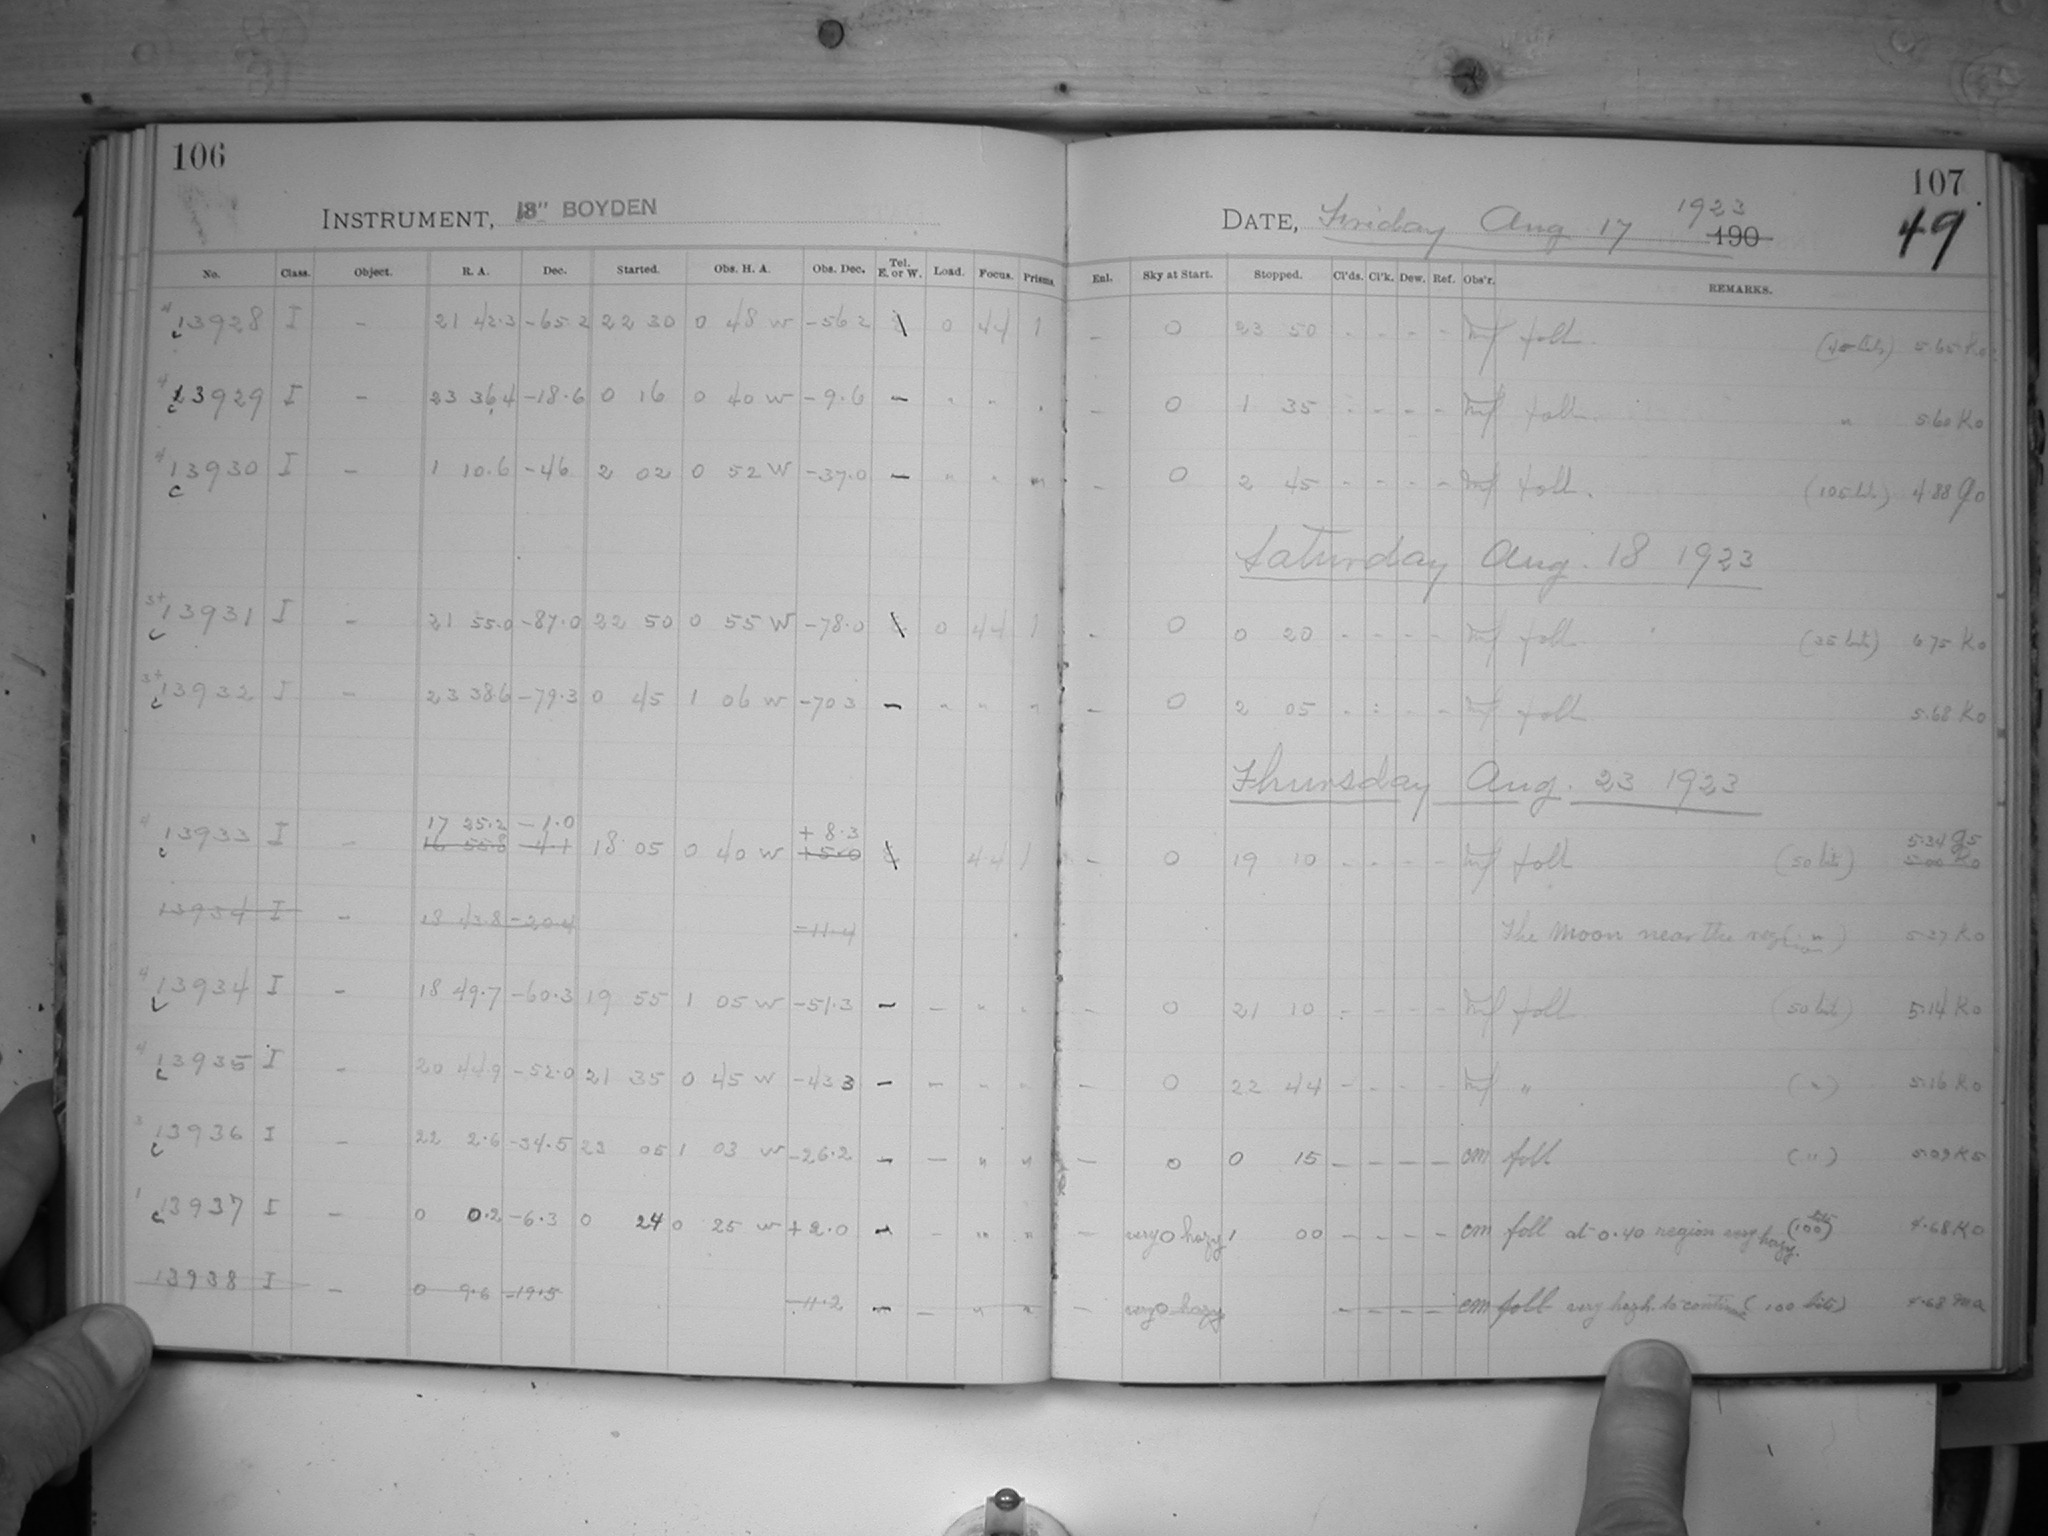 106
107
49
INSTRUMENT, 13" BOYDEN
DATE, Friday Aug 17 1923 190
No. Class. Object. R. A. Dec. Started. Obs. H. A. Obs. Dec. Tel. E. or W. Load. Focus. Prisms. Enl. Sky at Start. Stopped. Cl'ds. Cl'k. Dew. Ref. Obs'r. REMARKS.
4 13928 I - 21 42.3 -65.2 22 30 0 48 W -56 2 0 44 1 - 0 23 50 - - - - foll. 5.65 Ko
4 13929 I - 23 36.4 -18.6 0 16 0 40 W -9.6 - " " " - 0 1 35 - - - - foll. " 5.60 Ko
4 13930 I - 1 10.6 -46 2 02 0 52 W -37.0 - " " " - 0 2 45 - - - - foll. 4.88
Saturday Aug. 18 1923
3+ 13931 I - 21 55.0 -87.0 22 50 0 55 W -78.0 0 44 1 - 0 0 20 - - - - foll 6.75 Ko
3+ 13932 I - 23 38.6 -79.3 0 45 1 06 W -70 3 - " " " - 0 2 05 - - - - foll 5.68 Ko
Thursday Aug. 23 1923
4 13933 I - 17 25.2 -1.0 18 05 0 40 W +8.3 44 1 - 0 19 10 - - - - foll 5.34 g5
16 55.8 -4.1 +5.0 5.00 Ko
13934 I - 18 43.8 -20.4 -11.4 The Moon near the 5.27 Ko
4 13934 I - 18 49.7 -60.3 19 55 1 05 W -51.3 - - " " - 0 21 10 - - - - foll 5.14 Ko
4 13935 I - 20 44.9 -52.0 21 35 0 45 W -43 3 - - - - - 0 22 44 - - - - " (") 5.16 Ko
3 13936 I - 22 2.6 -34.5 23 05 1 03 W -26.2 - - " " - 0 0 15 - - - - cm foll (") 5.09 K5
1 13937 I - 0 0.2 -6.3 0 24 0 25 W +2.0 - - " " - very 0 hazy 1 00 - - - - cm foll at 0.40 region very hazy. (100) 4.68 Ko
13938 I - 0 9.6 -19.5 -11.2 - - " " - very 0 hazy - - - - cm foll very to (100) 4.68 ma